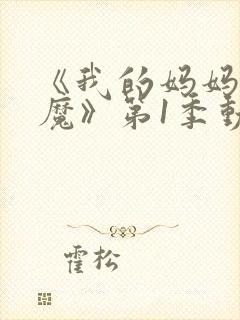 《我的妈妈
魔》第1季动
霍松